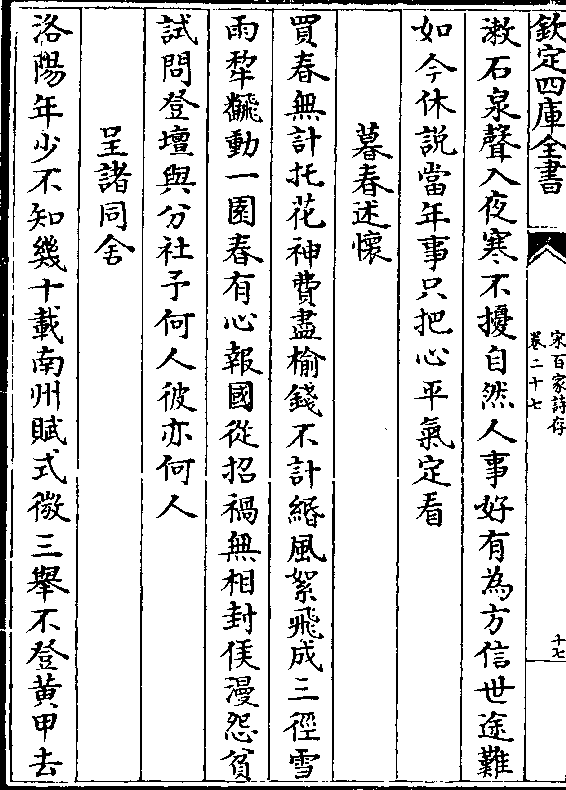 欽定四庫全書
宋百家詩存
卷二十七
十七
漱石泉聲入夜寒不擾自然人事好有為方信世途難
如今休說當年事只把心平氣定看
暮春述懷
買春無計托花神費盡榆錢不計緡風絮飛成三徑雪
雨犂飜動一園春有心報國從招禍無相封侯漫怨貧
試問登壇與分社予何人彼亦何人
呈諸同舍
洛陽年少不知幾十載南州賦式微三舉不登黄甲去